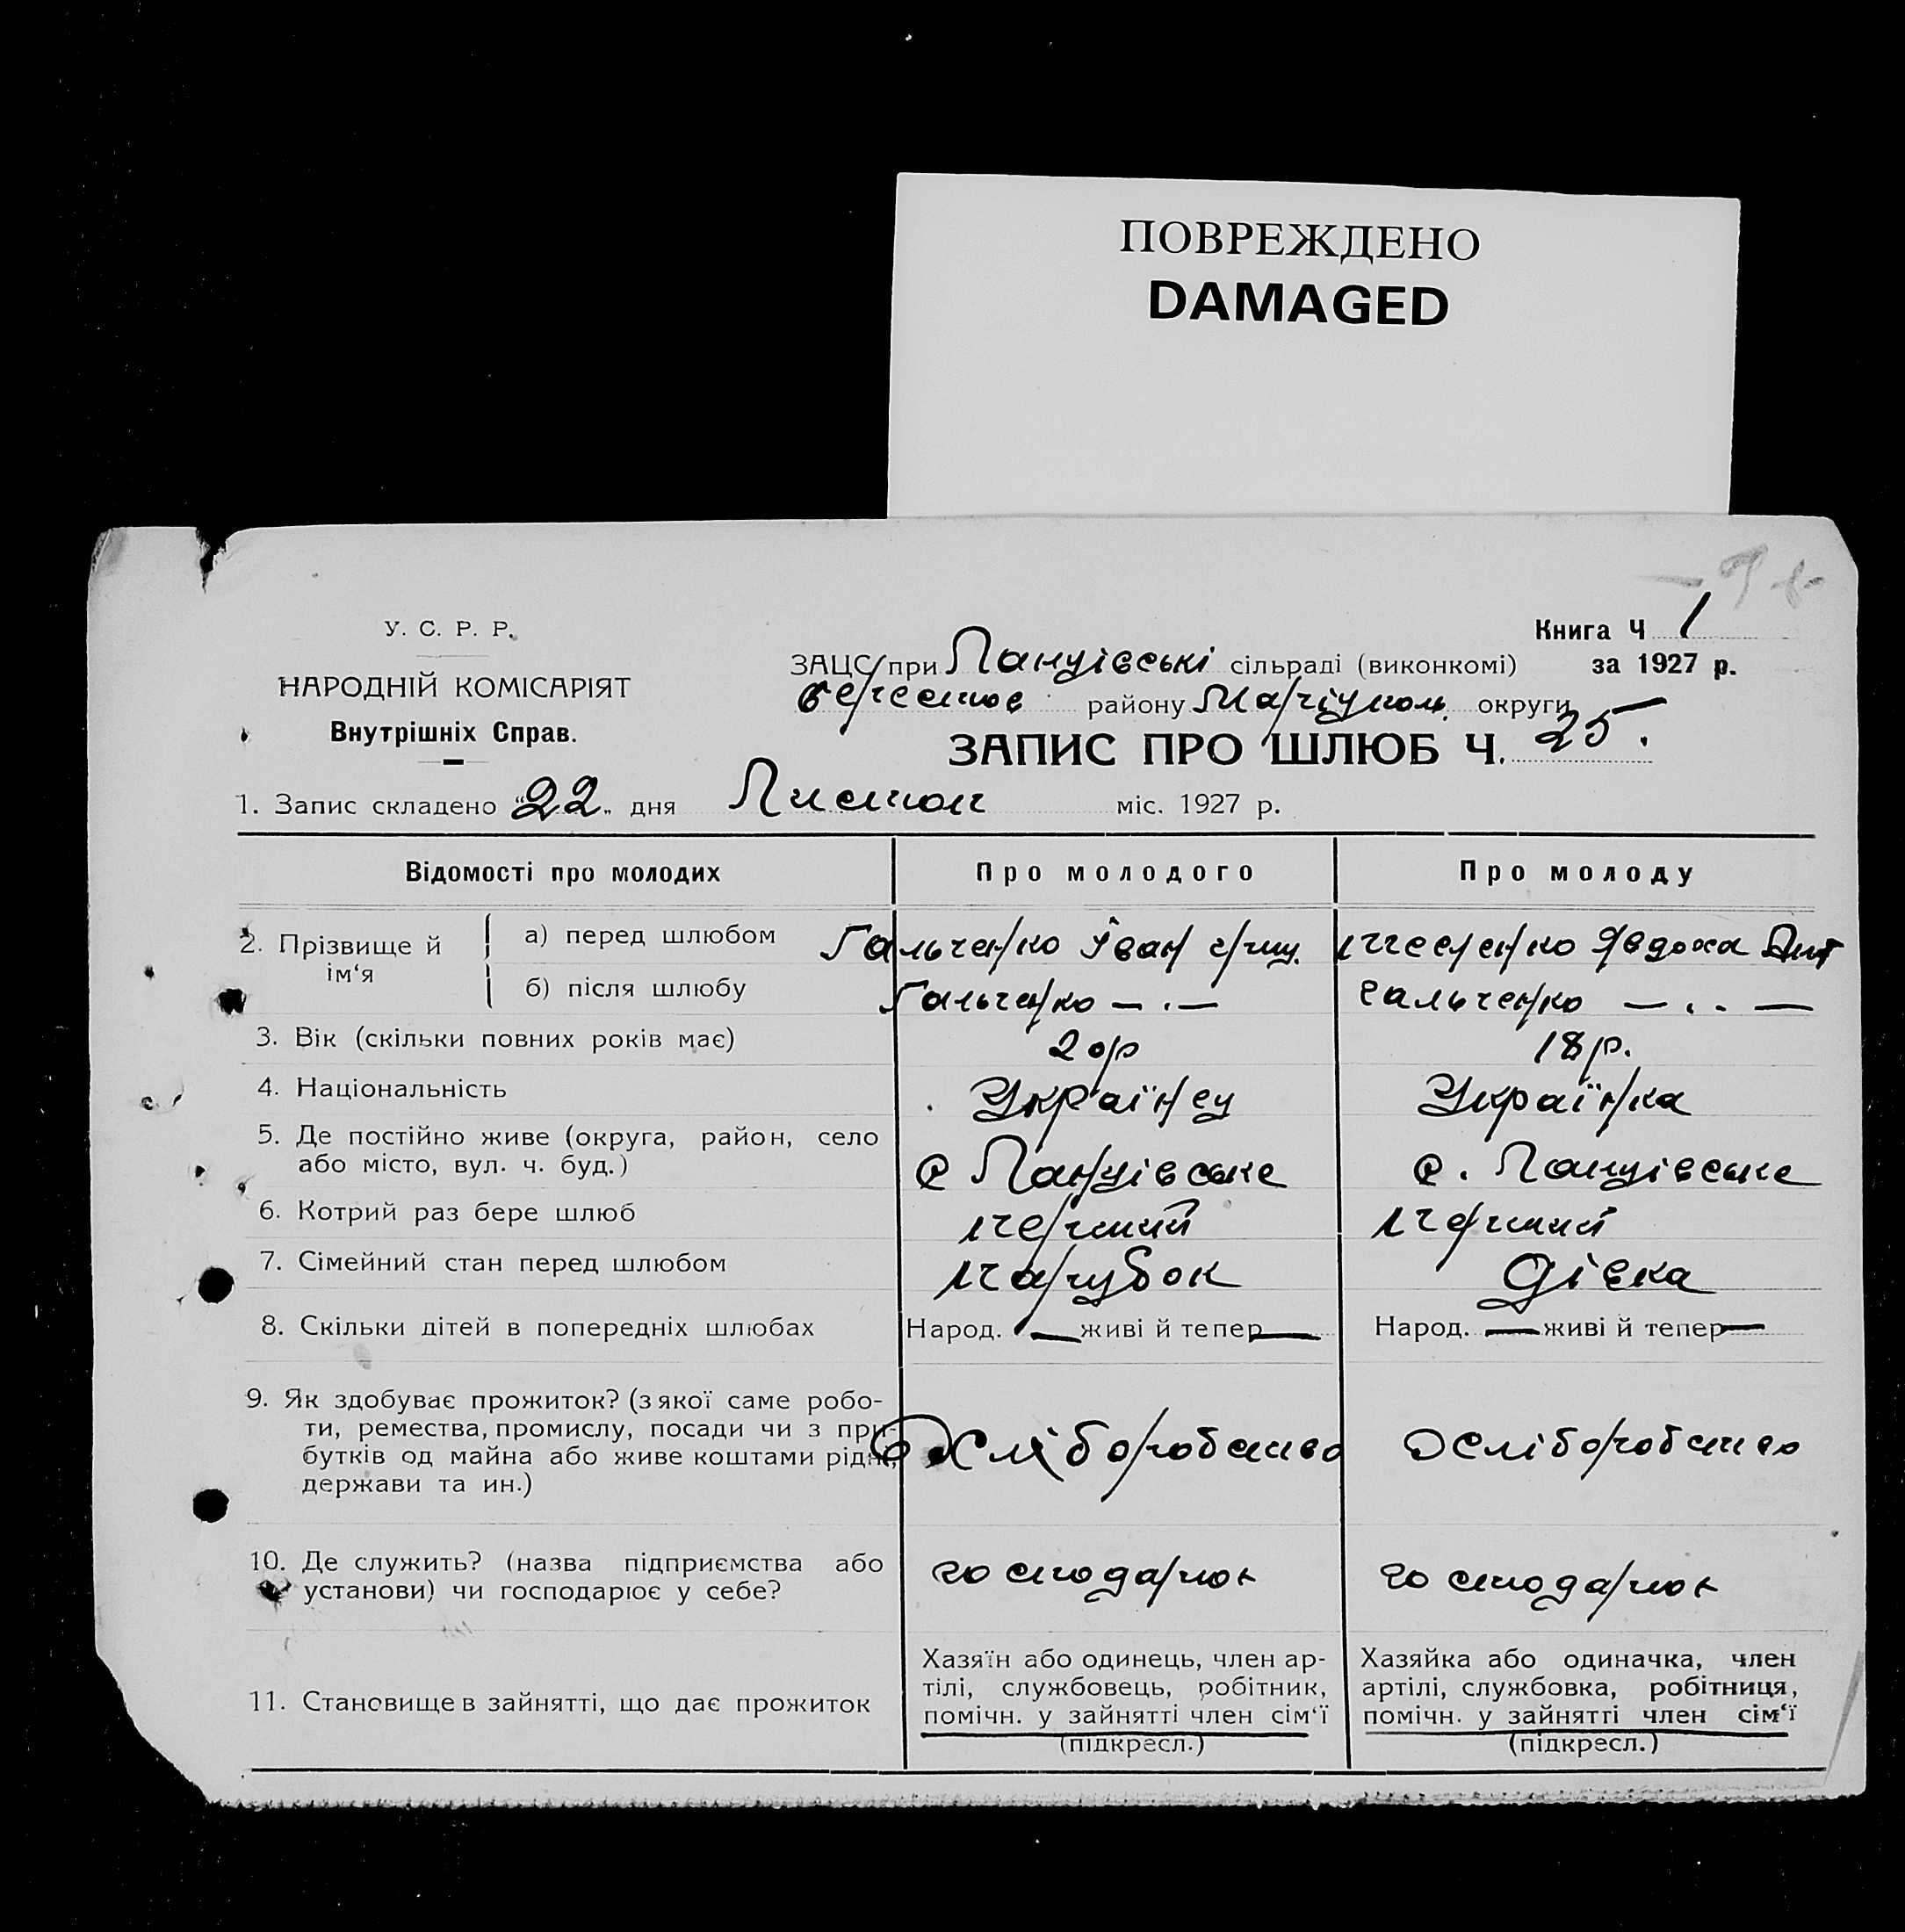 ПОВРЕЖДЕНО
DAMAGED
У. С. Р. Р.
НАРОДНІЙ КОМІСАРІЯТ
Внутрішніх Справ.
Книга Ч 1
за 1927 р.
ЗАЦС при Ланцівські сільраді (виконкомі)
берестов району Маріупол. округи
ЗАПИС ПРО ШЛЮБ Ч. 25.
1. Запис складено "22" дня Листоп міс. 1927 р.
Відомості про молодих Про молодого Про молоду
2. Прізвище й ім'я
а) перед шлюбом Гальченко Іван Явдоха
б) після шлюбу Гальченко — . — гальченко — . . —
3. Вік (скільки повних років має) 20р 18р.
4. Національність Українец Українка
5. Де постійно живе (округа, район, село
або місто, вул. ч. буд.) с Ланцівське с. Ланцівське
6. Котрий раз бере шлюб перший перший
7. Сімейний стан перед шлюбом парубок дівка
8. Скільки дітей в попередніх шлюбах Народ. — живі й тепер — Народ. — живі й тепер —
9. Як здобуває прожиток? (з якої саме робо-
ти, ремества, промислу, посади чи з при-
бутків од майна або живе коштами рідні,
держави та ин.) хліборобство хліборобство
10. Де служить? (назва підприємства або
установи) чи господарює у себе? господарює господарює
11. Становище в зайнятті, що дає прожиток
Хазяїн або одинець, член ар-
тілі, службовець, робітник,
помічн. у зайнятті член сім'ї
(підкресл.)
Хазяйка або одиначка, член
артілі, службовка, робітниця,
помічн. у зайнятті член сім'ї
(підкресл.)